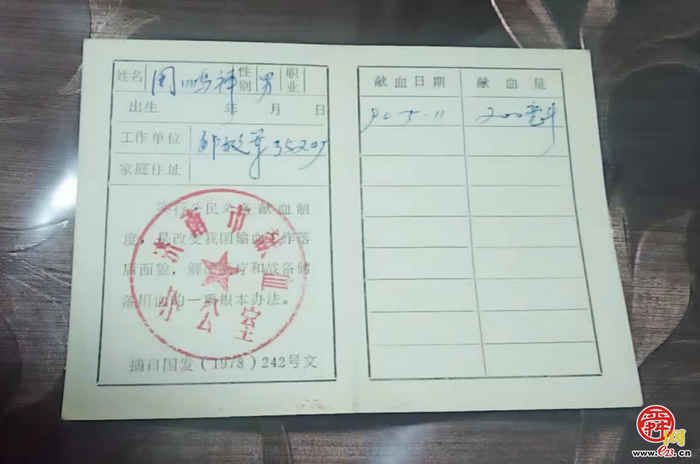 姓名 周鹏祥 性别 男 职业
出生 年 月 日
工作单位
家庭住址
实行公民义务献血制
度，是改变我国输血工作落
后面貌，解决医疗和战备储
备用血的一项根本办法。
济南市献血
办公室
摘自国发(1978)242号文
献血日期 献血量
90-5-11 200毫升
舜网
e23.cn